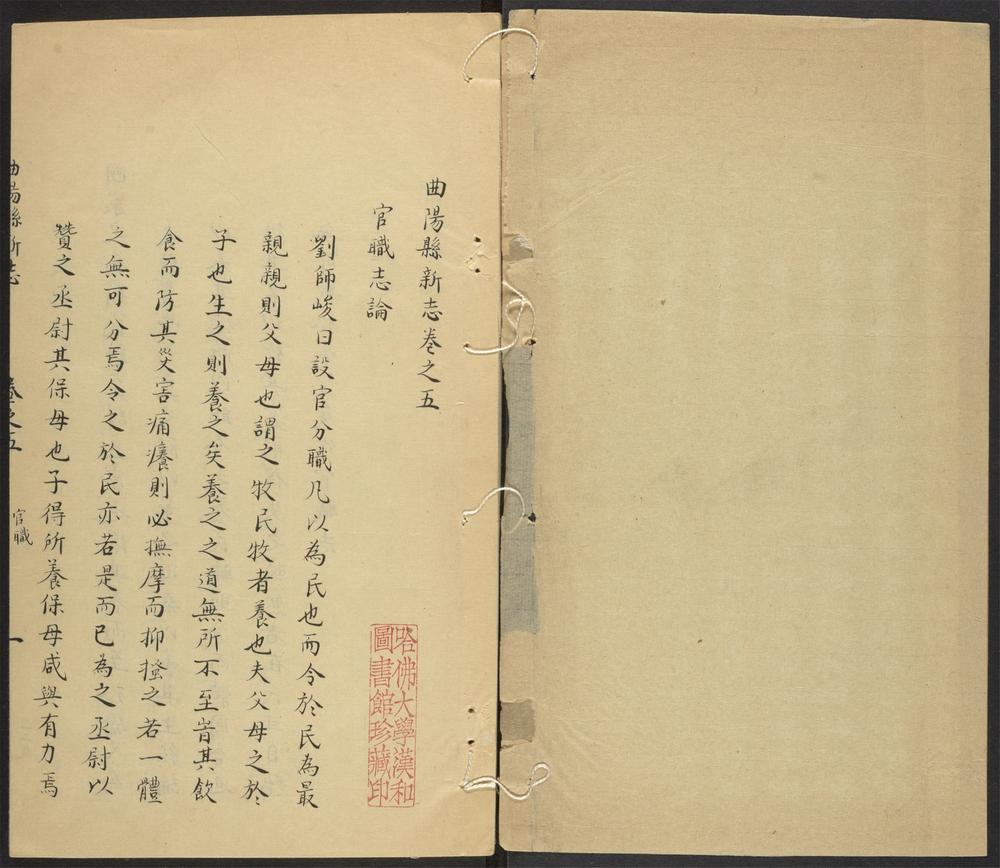 曲陽縣新志卷之五
官職志論
劉師峻曰設官分職凡以為民也而令於民為最
親親則父母也謂之牧民牧者養也夫父母之於
子也生之則養之矣養之之道無所不至峕其飲
食而防其災害痛癢則必撫摩而抑搔之若一體
之無可分焉令之於民亦若是而已為之丞尉以
贊之丞尉其保母也子得所養保母咸與有力焉
曲陽縣新志 卷之五 官職 一
哈佛大學漢和
圖書館珍藏印